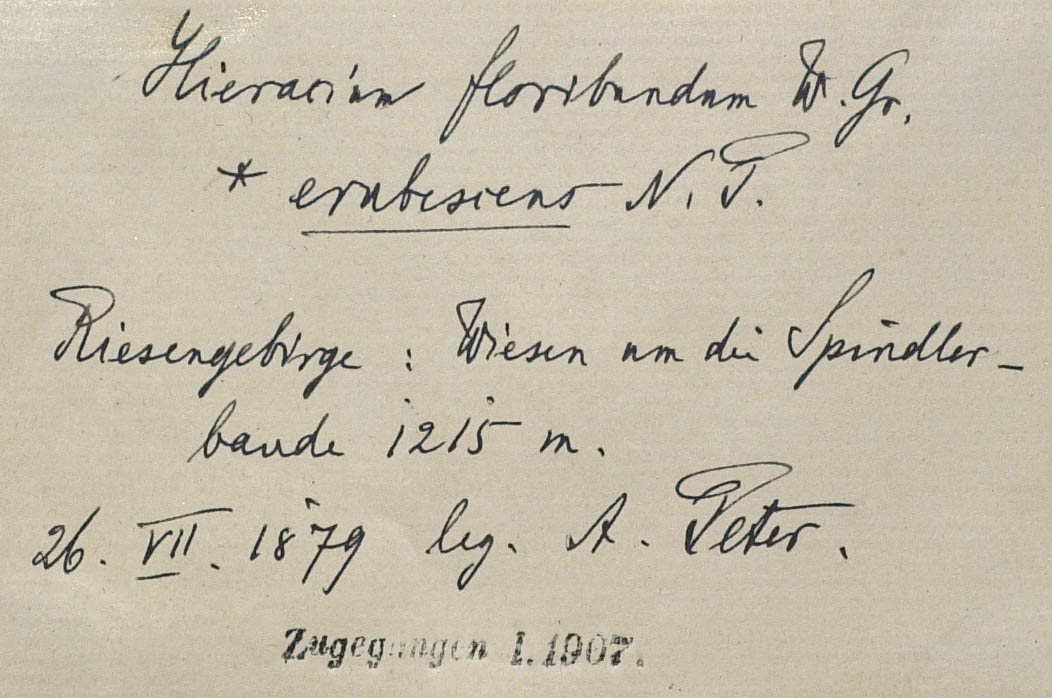 Hieracium floribundum W. Gr.
* erubescens N. P.
Riesengebirge : Wiesen um die Spindler-
baude 1215 m.
26. VII. 1879 leg. A. Peter.
Zugegangen I. 1907.